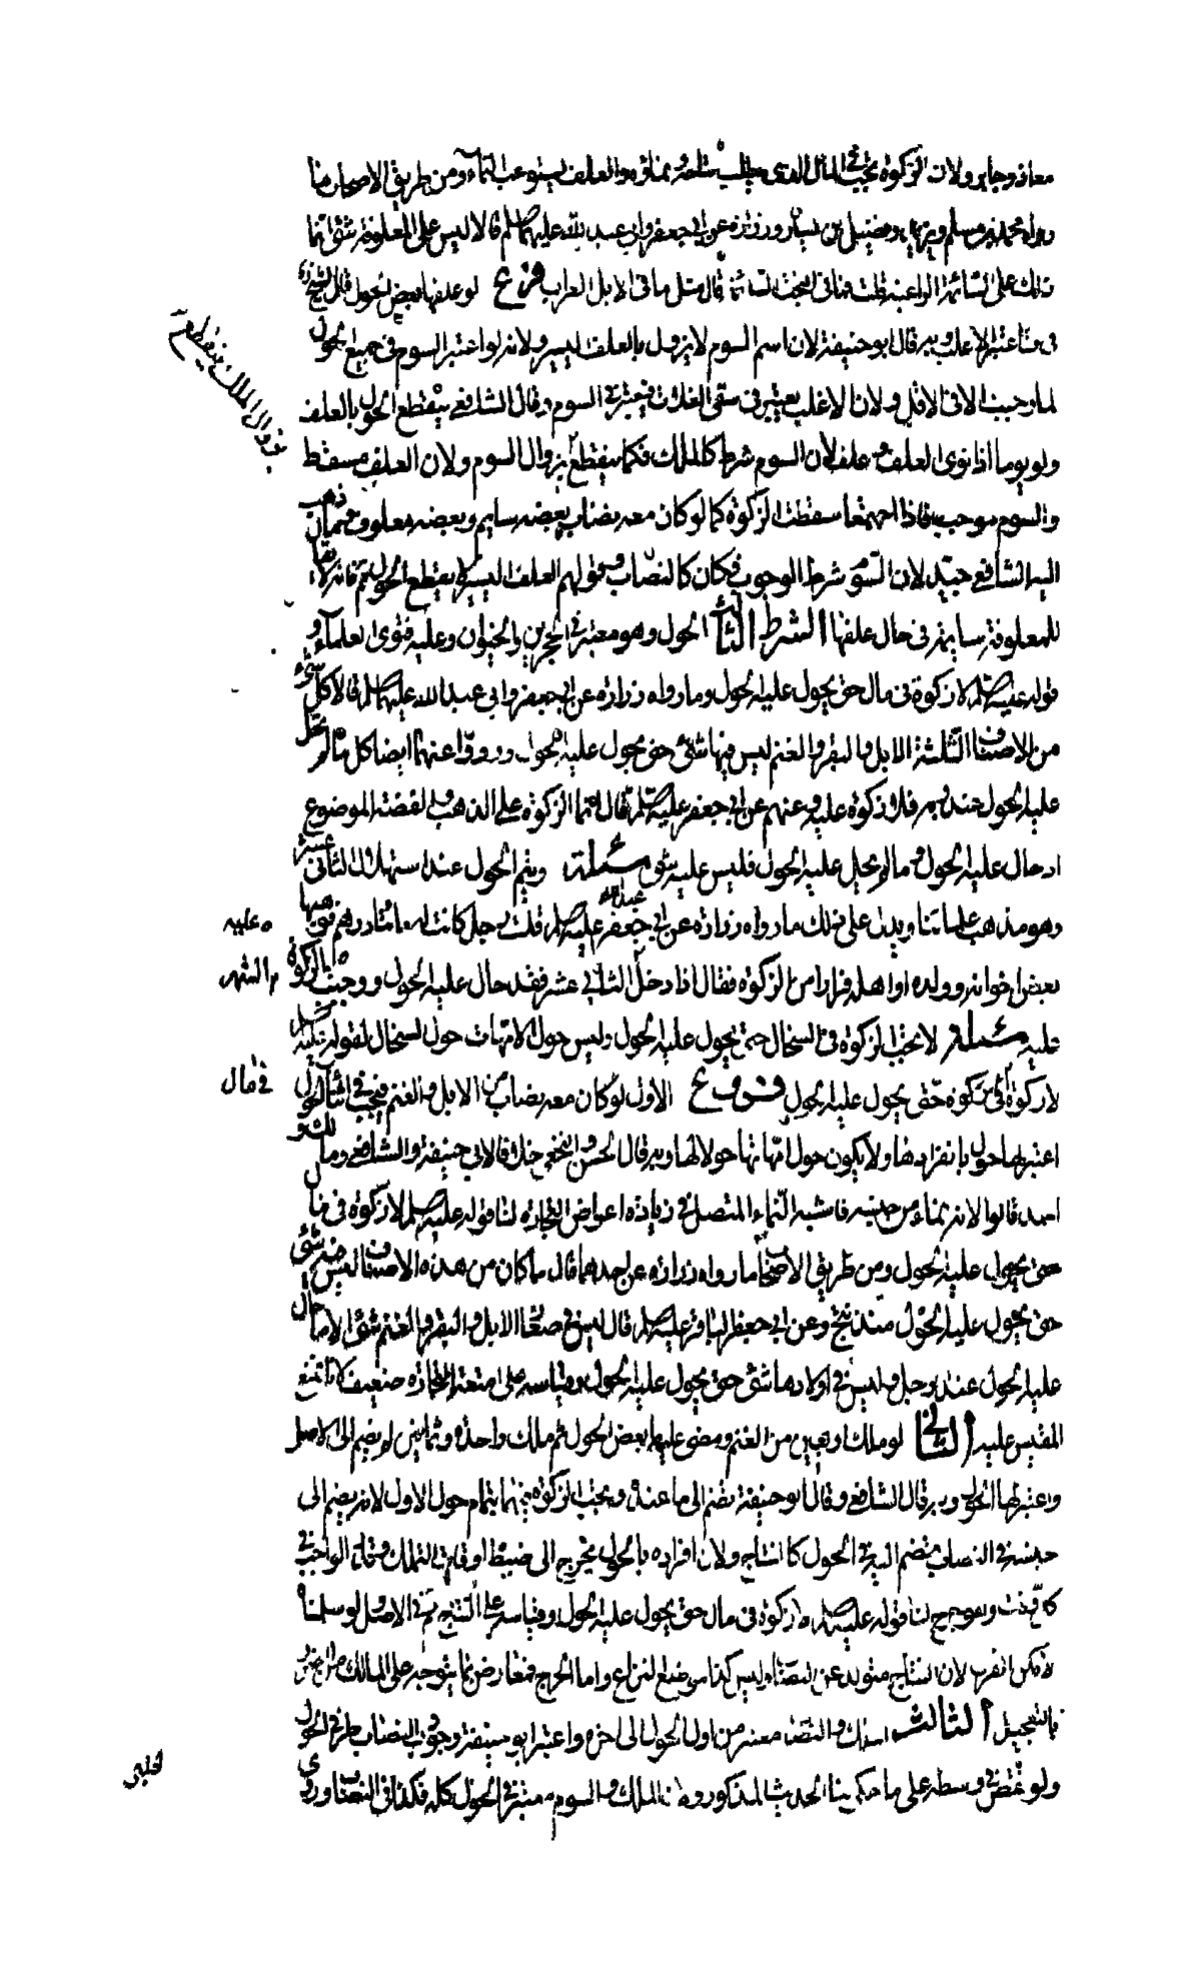 معاذ وجابر ولان الزكوة تجب في المال الذي يطلب نماؤه والعلف يستوعب النماء ومن طريق الاصحاب ما
رواه محمد بن مسلم وبريد وفضيل بن يسار وزرارة عن ابي جعفر وابي عبد الله عليهما السلم قالا ليس على المعلوفة شئ انما
ذلك على السائمة الراعية قلت فما في البخت السائمة قال مثل ما في الابل العراب فرع لو علفها بعض الحول قال الشيخ ره
في ف اعتبر الاغلب وبه قال ابو حنيفة لان اسم السوم لا يزول بالعلف اليسير ولانه لو اعتبر السوم في جميع الحول
لما وجبت الا في الاقل ولان الاغلب يعتبر في سقي الغلات فيعتبر في السوم وقال الشافعي ينقطع الحول بالعلف
ولو يوما اذا نوى العلف وعلف لان السوم شرط كالملك فكما ينقطع بزوال السوم ولان العلف مسقط
بزوال الملك ينقطع
والسوم موجب فاذا اجتمعا سقطت الزكوة كما لو كان معه نصاب بعضه سايم وبعضه معلوف وما ذهب
اليه الشافعي جيد لان السوم شرط الوجوب فكان كالنصاب وقولهم العلف اليسير لا يقطع الحول ثم فانه لا يقال
للمعلوفة سايمة في حال علفها الشرط الثالث الحول وهو معتبر في الحجرين والحيوان وعليه فتوى العلماء و
قوله عليه السلم لا زكوة في مال حتى يحول عليه الحول وما رواه زرارة عن ابي جعفر وابي عبد الله عليهما السلم قالا كل شئ
من الاصناف الثلثة الابل والبقر والغنم ليس فيها شئ حتى يحول عليه الحول ورووا عنهما ايضا كل ما لم يحل
عليه الحول عند ربه فلا زكوة عليه وعنهم عن ابي جعفر عليه السلم قال انما الزكوة على الذهب والفضة الموضوع
اذ حال عليه الحول وما لم يحل عليه الحول فليس عليه شئ مسئلة ويتم الحول عند استهلال الثاني عشر
وهو مذهب علمائنا ويدل على ذلك ما رواه زرارة عن ابي عبد الله جعفر عليه السلم قلت رجل كانت له مائتا درهم فوهبها
ه عليه
بعض اخوانه وولده او اهله فرارا من الزكوة فقال اذا دخل الثاني عشر فقد حال عليه الحول ووجبت الزكوة
م الشهر
عليه مسئلة لا تجب الزكوة في السخال حتى يحول عليه الحول وليس حول الامهات حول السخال لقوله عليه السلم
لا زكوة في زكوة حتى يحول عليه الحول فروع الاول لو كان معه نصاب من الابل والغنم فنتجت في اثناء الحول
في مال
اعتبر لها حول بانفرادها ولا يكون حول امهاتها حولا لها وبه قال الحسن والنخعي خلافا لابي حنيفة والشافعي ومالك و
احمد قالوا لانه نماء من جنسه فاشبه النماء المتصل في زيادة اعواض التجارة لنا قوله عليه السلم لا زكوة في مال
حتى يحول عليه الحول ومن طريق الاصحاب ما رواه زرارة عن احدهما قال ما كان من هذه الاصناف فليس فيه شئ
حتى يحول عليه الحول منذ نتج وعن ابي جعفر الباقر عليه السلم قال ليس في صغار الابل والبقر والغنم شئ الا ما حال
عليه الحول عند الرجل وليس في اولادها شئ حتى يحول عليه الحول وقياسه على امتعة التجارة ضعيف لانا نمنع
المقيس عليه الثاني لو ملك اربعين من الغنم ومضى عليها بعض الحول ثم ملك واحدة وثمانين لم يضم الى الاصل
واعتبر لها الحول وبه قال الشافعي وقال ابو حنيفة تضم الى ما عنده وتجب الزكوة فيهما بتمام حول الاول لانه يضم الى
جنسه في النصاب فيضم اليه في الحول كالنتاج ولان افراده بالحول يحوج الى ضبط اوقات التملك وقدر الواجب في
كل وقت وهو حرج لنا قوله عليه السلم لا زكوة في مال حتى يحول عليه الحول وقياسه على النتج ثم في الاصل ولو سلمنا
لامكن الفرق لان النتاج متولد عن النصاب وليس كذا موضع النزاع واما الحرج فمعارض بما يتوجه على المالك من الحرج
بالتعجيل الثالث الملك والنصاب معتبر من اول الحول الى اخره واعتبر ابو حنيفة وجود النصاب طرفي الحول
ولو نقص في وسطه على ما حكي لنا الحديث المذكور ولان الملك والسوم معتبر في الحول كله فكذا في النصاب وروى
الحلبي